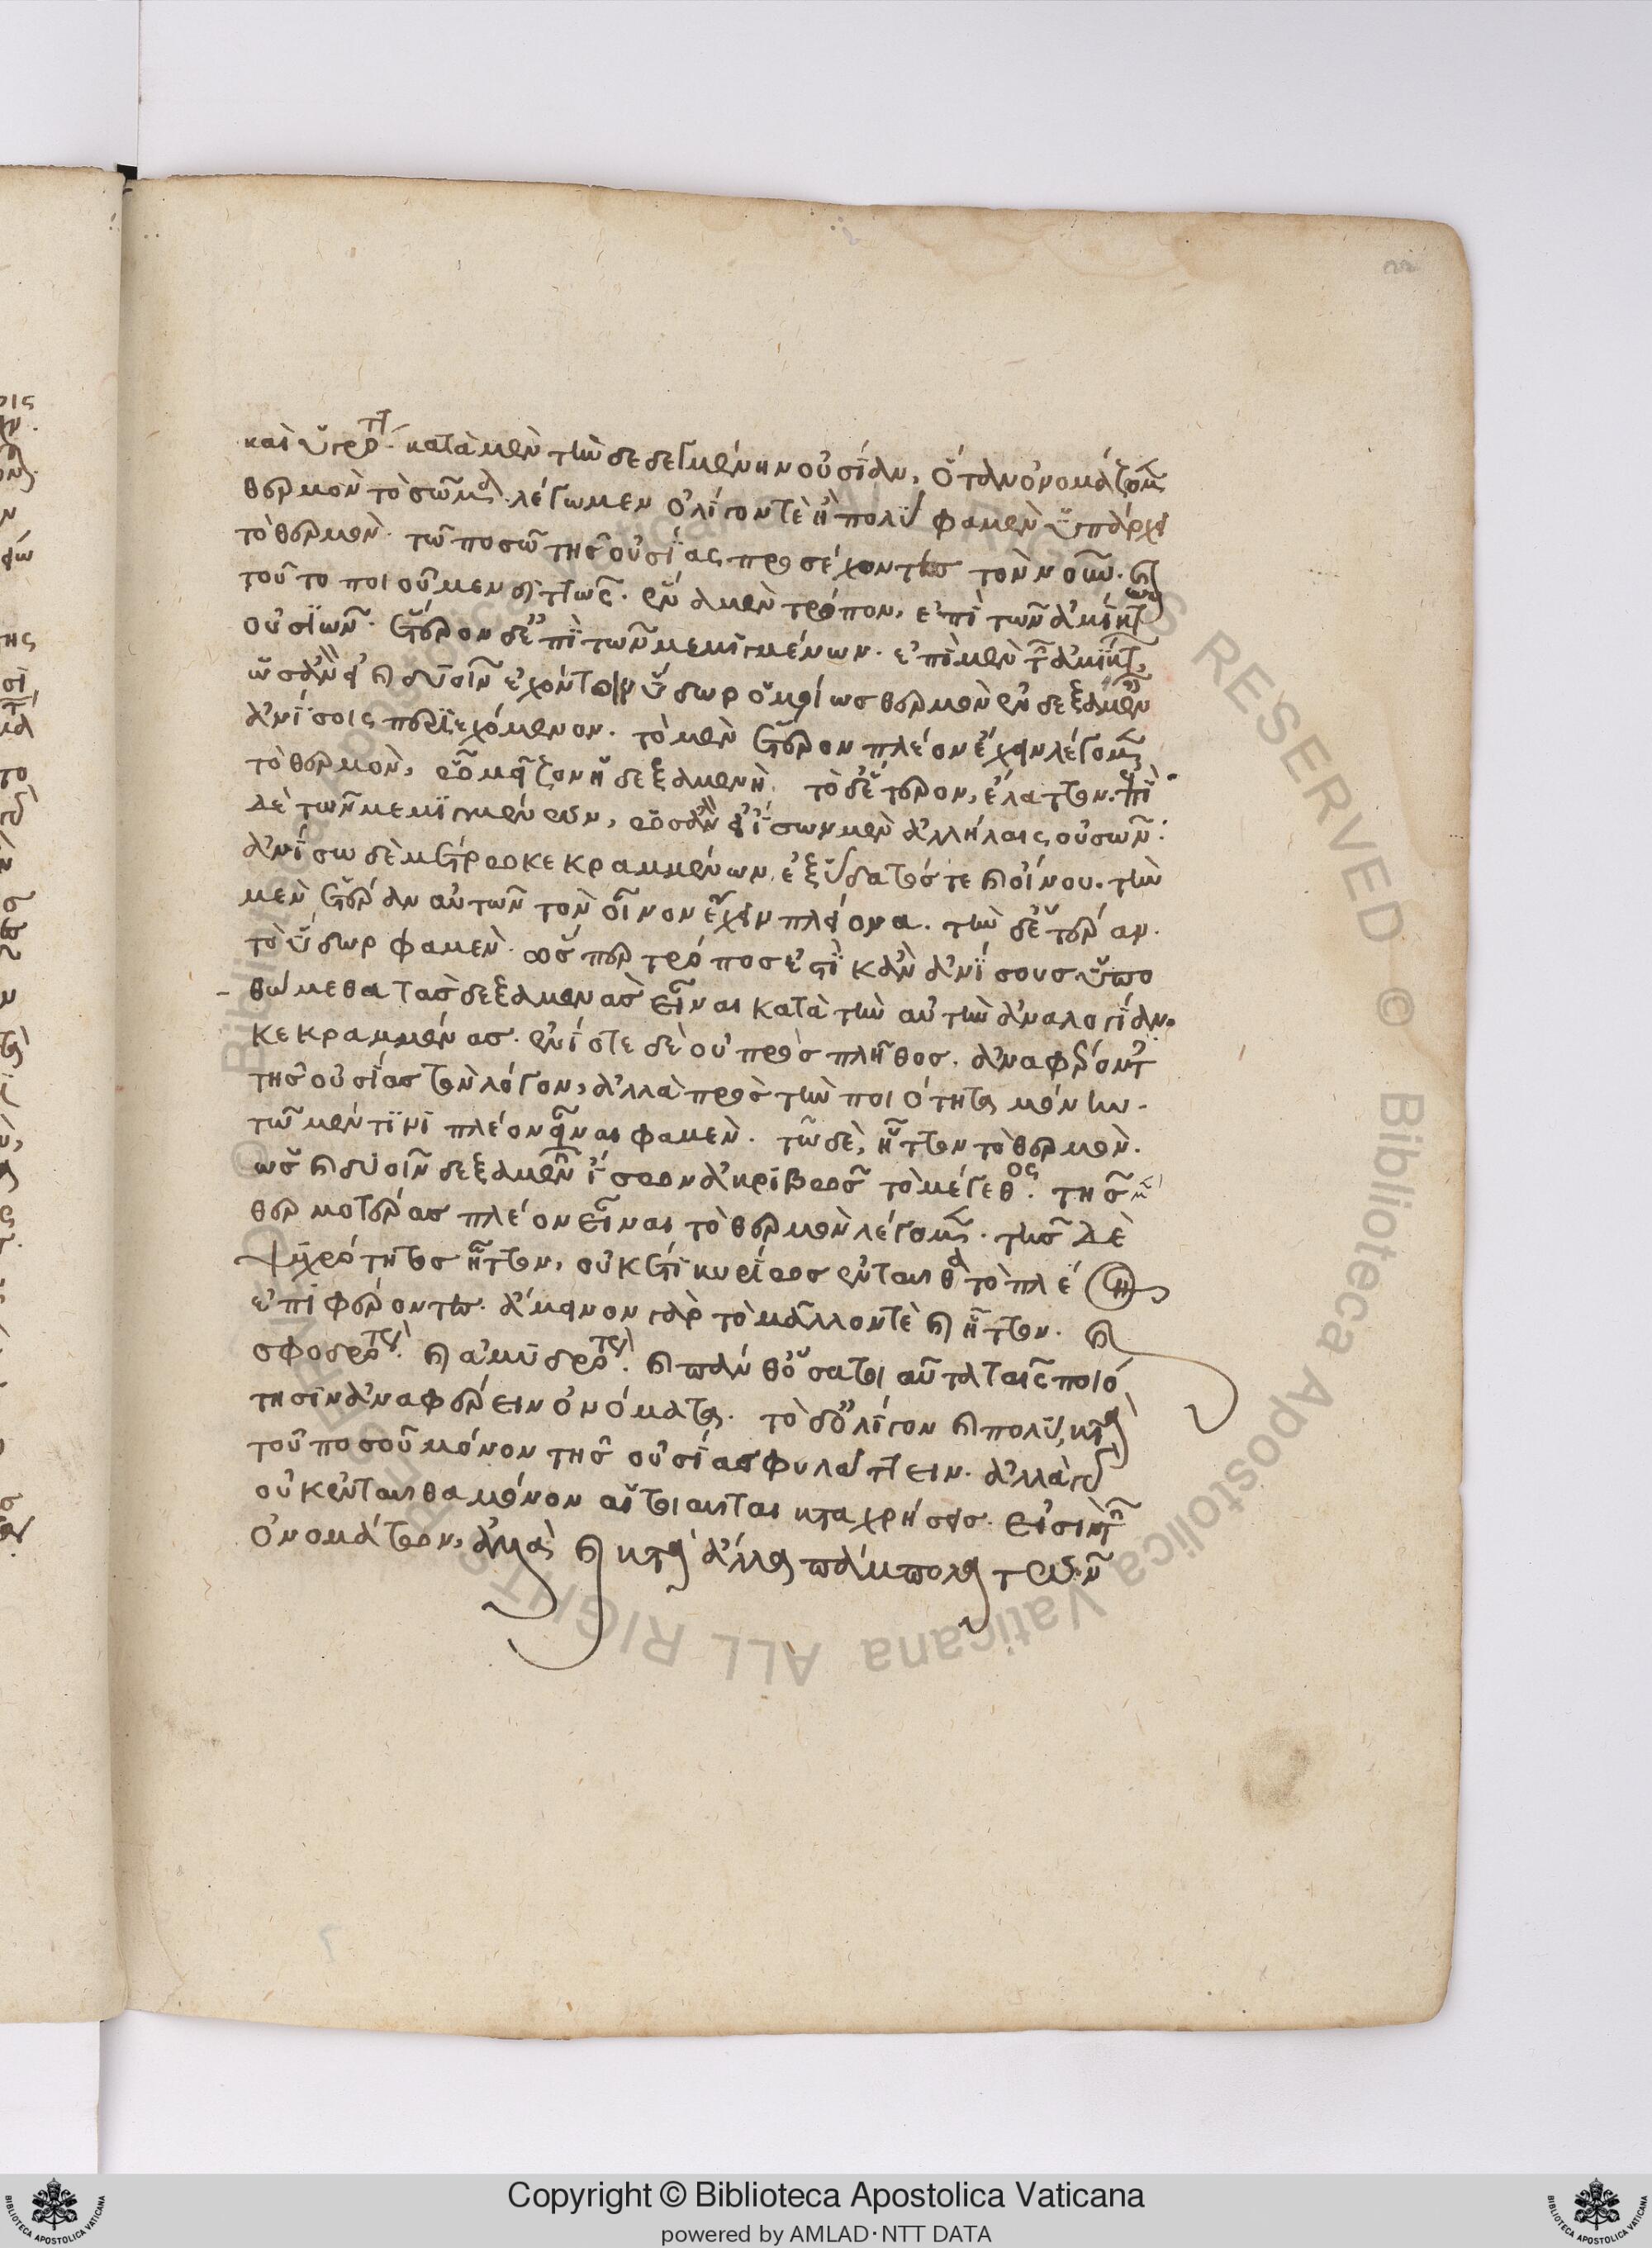 καὶ ὑγρότη. κατὰ μὲν τὴν δεδεγμένην οὐσίαν, ὅταν ὀνομάζομεν
θερμὸν τὸ σῶμα. λέγωμεν ὀλίγον τὲ ἢ πολὺ φαμὲν ὑπάρχει
τὸ θερμὸν. τῶ ποσῶ τῆς οὐσίας προσέχοντες τὸν νοῦν. καὶ
τοῦτο ποιοῦμεν διττῶς. ἕνα μὲν τρόπον, ἐπὶ τῶν ἀμίκτων
οὐσιῶν. ἕτερον δὲ ἐπὶ τῶν μεμιγμένων. ἐπὶ μὲν τῶν ἀμίκτων,
ὡς ἂν εἰ καὶ δυσὶν ὕδωρ ὁμοίως θερμὸν ἐν δεξαμεναῖς
ἀνίσοις περιεχόμενον. τὸ μὲν ἕτερον πλέον ἔχειν λέγομεν
τὸ θερμὸν, ὡς μείζον ἡ δεξαμενὴ. τὸ δ' ἕτερον, ἔλαττον. ἐπὶ
δὲ τῶν μεμιγμένων, ὡς ἂν εἰ ἴσων μὲν ἀλλήλαις οὐσῶν.
ἀνίσω δὲ μέτρω κεκραμμένων, ἐξ ὕδατός τε καὶ οἴνου. τὴν
μὲν ἑτέραν αὐτῶν τὸν οἶνον ἔχειν πλείονα. τὴν δ' ἑτέραν.
τὸ ὕδωρ φαμὲν. ὥσπερ τρόπος ἐστὶ κἂν ἀνίσους ὑπο
θώμεθα τὰς δεξαμενὰς εἶναι κατὰ τὴν αὐτὴν ἀναλογίαν.
κεκραμμένας. ἐνίοτε δὲ οὐ πρὸς πλῆθος. ἀναφέροντες
τῆς οὐσίας τὸν λόγον, ἀλλὰ πρὸς τὴν ποιότητα μόνην.
τῶ μέν τινι πλέον εἶναι φαμὲν. τῶ δὲ, ἧττον τὸ θερμὸν.
ὡς καὶ δυοῖν δεξαμεναῖν ἴσων ἀκριβῶς τὸ μέγεθος. τῆς μὲν
θερμοτέρας πλέον εἶναι τὸ θερμὸν λέγομεν. τῆς δὲ
ψυχρότητος ἧττον, οὐκέτι κυρίως ἐνταῦθα τὸ πλέ
ἐπιφέροντες. ἄμεινον γὰρ τὸ μᾶλλον τὲ καὶ ἧττον. καὶ
σφοδρότερον. καὶ ἀμυδρότερον. καὶ πάνθ' ὅσα τοιαῦτα ταῖς ποιό
τησιν ἀναφέρειν ὀνόματα. τὸ δ' ὀλίγον καὶ πολὺ, κατὰ
τοῦ ποσοῦ μόνον τῆς οὐσίας φυλάττειν. ἀλλὰ γὰρ
οὐκ ἐνταῦθα μόνον αἱ τοιαῦται καταχρήσεις. εἰσὶ τῶν
ὀνομάτων, ἀλλὰ καὶ κατὰ ἄλλα πάμπολλα τῶν